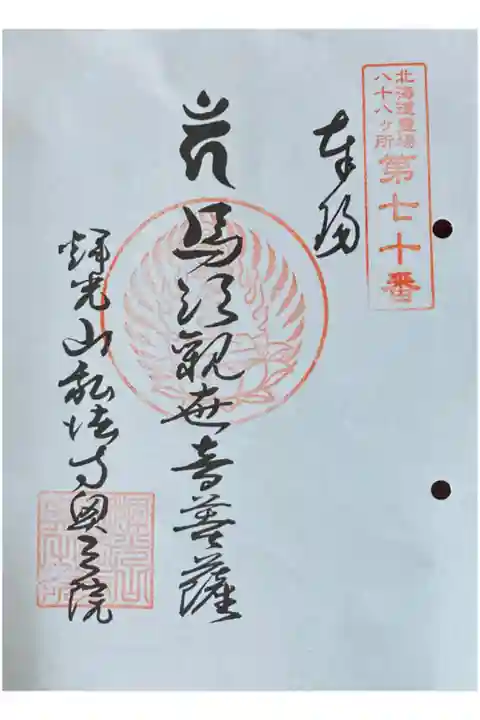 北海道霊場
八十八ヶ所
第七十番
奉拝
馬頭観世音菩薩
輝光山弘法寺奥之院